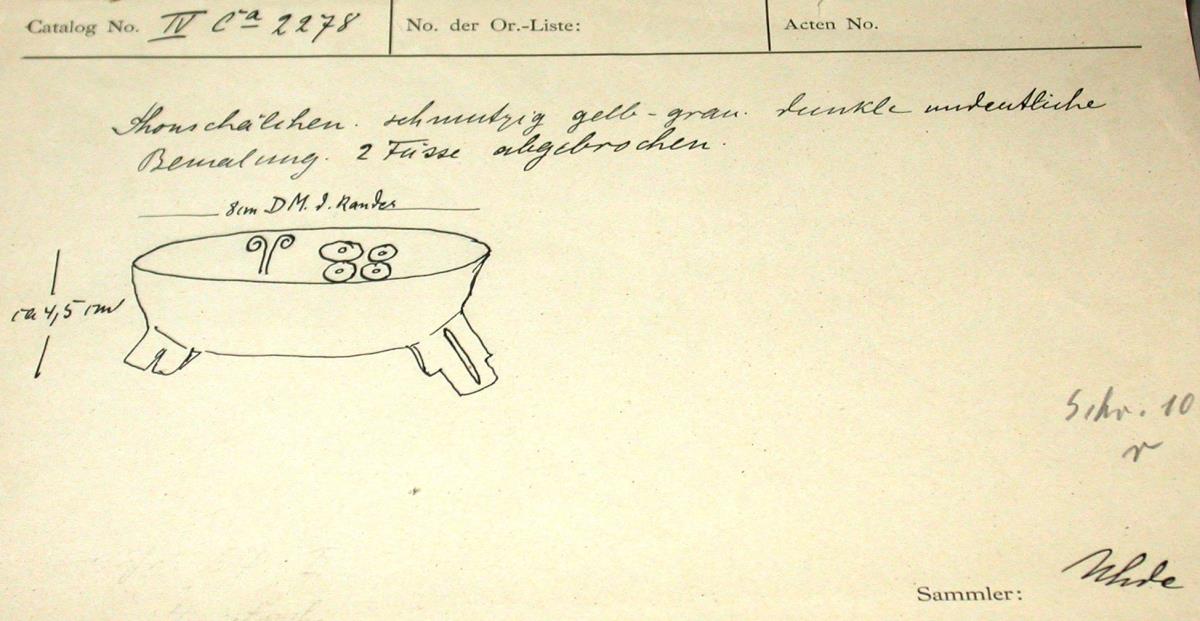 Catalog No. IV Ca 2278 No. der Or.-Liste: Acten No.
Thonschälchen. schmutzig gelb-grau. dunkle undeutliche
Bemalung. 2 Füsse abgebrochen.
8cm DM. d. Randes
ca 4,5 cm
Schr. 10
r
Sammler: Uhde